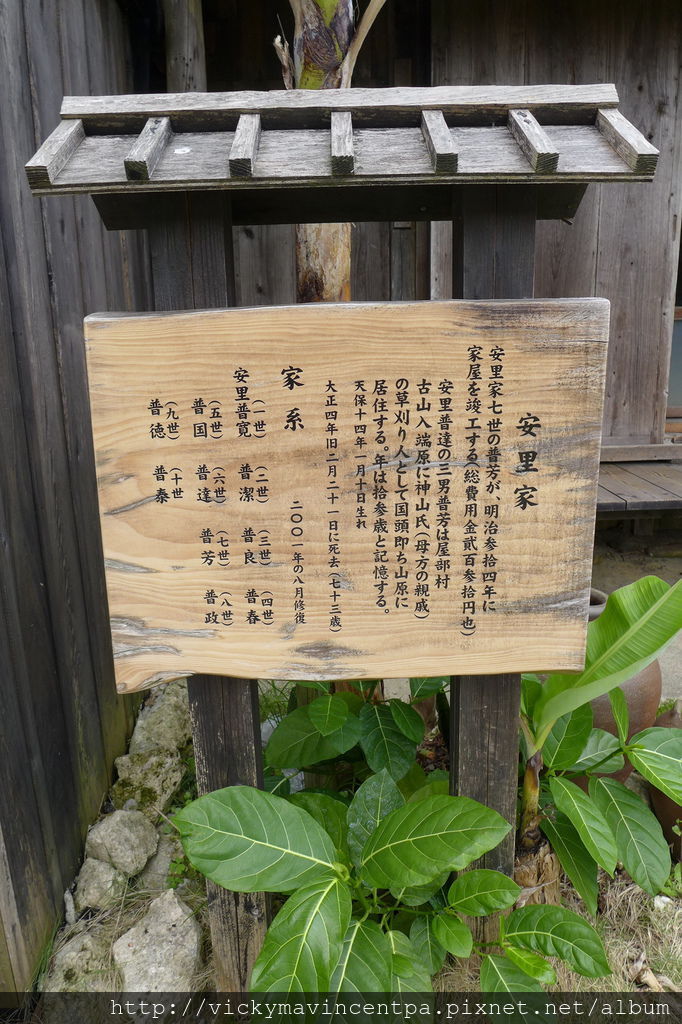 安里家
安里家七世の普芳が、明治参拾四年に
家屋を竣工する(総費用金貳百参拾円也)
安里普達の三男普芳は屋部村
古山入端原に神山氏(母方の親戚)
の草刈り人として国頭即ち山原に
居住する。年は拾参歳と記憶する。
天保十四年一月十日生れ
大正四年旧二月二十一日に死去(七十三歳)
二〇〇一年の八月修復
家系
(一世) (二世) (三世) (四世)
安里普寛 普潔 普良 普春
(五世) (六世) (七世) (八世)
普国 普達 普芳 普政
(九世) (十世)
普徳 普泰
http://vickymavincentpa.pixnet.net/album